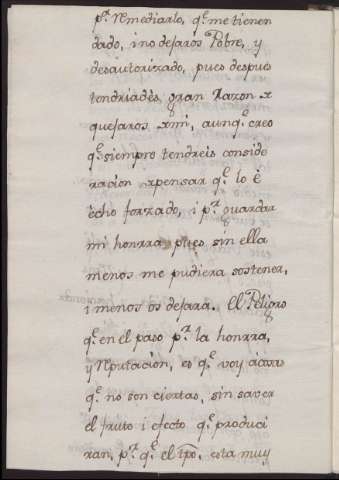 p.ª remediarlo, q.e me tienen
dado, i no dejaros Pobre, y
desautorizado, pues despues
tendriades gran Razon x
quejaros xmi, aunq.e creo
q.e siempre tendreis conside
racion apensar q.e lo è
ècho forzado, i p.ª guardar
mi honrra pues sin ella
menos me pudiera sostener,
i menos os dejara. El Peligro
q.e en el paso p.ª la honrra,
y reputacion, es q.e voy à cosas
q.e no son ciertas, sin saver
el fruto i efecto q.e produci
ran, p.r q.e el tpo. esta muy